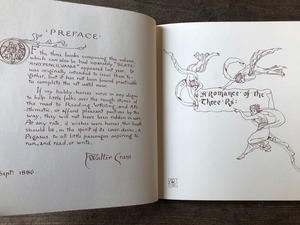 ·PREFACE·
OF the three books composing this volume,
which can also be had separately, "SLATE
AND PENCILVANIA" appeared last. It
was originally intended to issue them to-
gether, but it has not been found practicable
to complete the set until now.
If my hobby-horses serve in any degree
to help little folks over the rough stones of
the road to Reading, Writing, and Ari-
thmetic, or afford pleasant pastime by the
way, they will not have been ridden in vain.
At any rate, if wishes were horses, this book
should be, in the spirit of its cover-device, a
Pegasus to all little passengers aspiring to
run, and read, or write.
Walter Crane
Sept: 1886
A Romance of the
Three Rs: